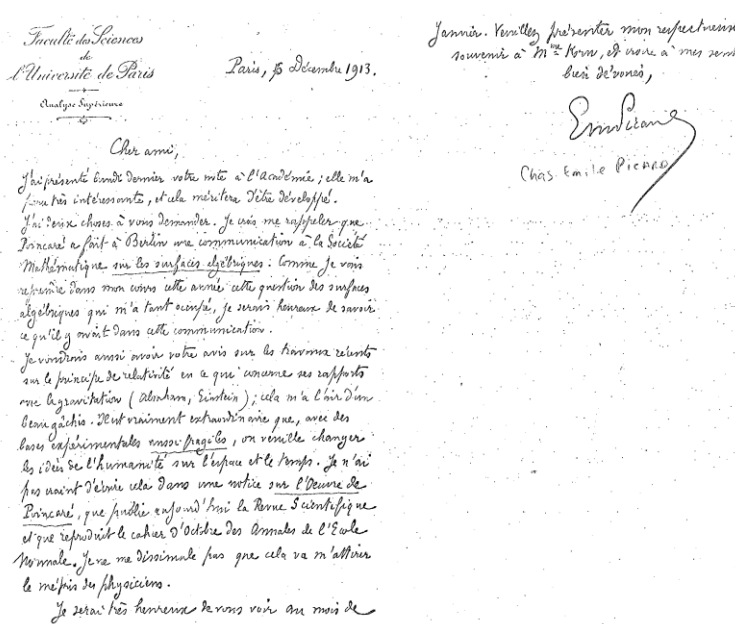 Faculté des Sciences
de
l'Université de Paris
Analyse Supérieure
Paris, 15 Décembre 1913.
Cher ami,
J'ai présenté lundi dernier votre note à l'Académie ; elle m'a
paru très intéressante, et cela méritera d'être développé.
J'ai deux choses à vous demander. Je crois me rappeler que
Poincaré a fait à Berlin une communication à la Société
Mathématique sur les surfaces algébriques. Comme je vais
reprendre dans mon cours cette année cette question des surfaces
algébriques qui m'a tant occupé, je serais heureux de savoir
ce qu'il y avait dans cette communication.
Je voudrais aussi avoir votre avis sur les travaux récents
sur le principe de relativité en ce qui concerne ses rapports
avec la gravitation (Abraham, Einstein) ; cela m'a l'air d'un
beau gâchis. Il est vraiment extraordinaire que, avec des
bases expérimentales aussi fragiles, on veuille changer
les idées de l'humanité sur l'espace et le temps. Je n'ai
pas craint d'écrire cela dans une notice sur l'Oeuvre de
Poincaré, que publie aujourd'hui la Revue Scientifique
et que reproduit le cahier d'Octobre des Annales de l'Ecole
Normale. Je ne me dissimule pas que cela va m'attirer
le mépris des physiciens.
Je serai très heureux de vous voir au mois de
Janvier. Veuillez présenter mon respectueux
souvenir à Mme Korn, et croire à mes sent
bien dévoués,
Em Picard
Chas. Emile Picard